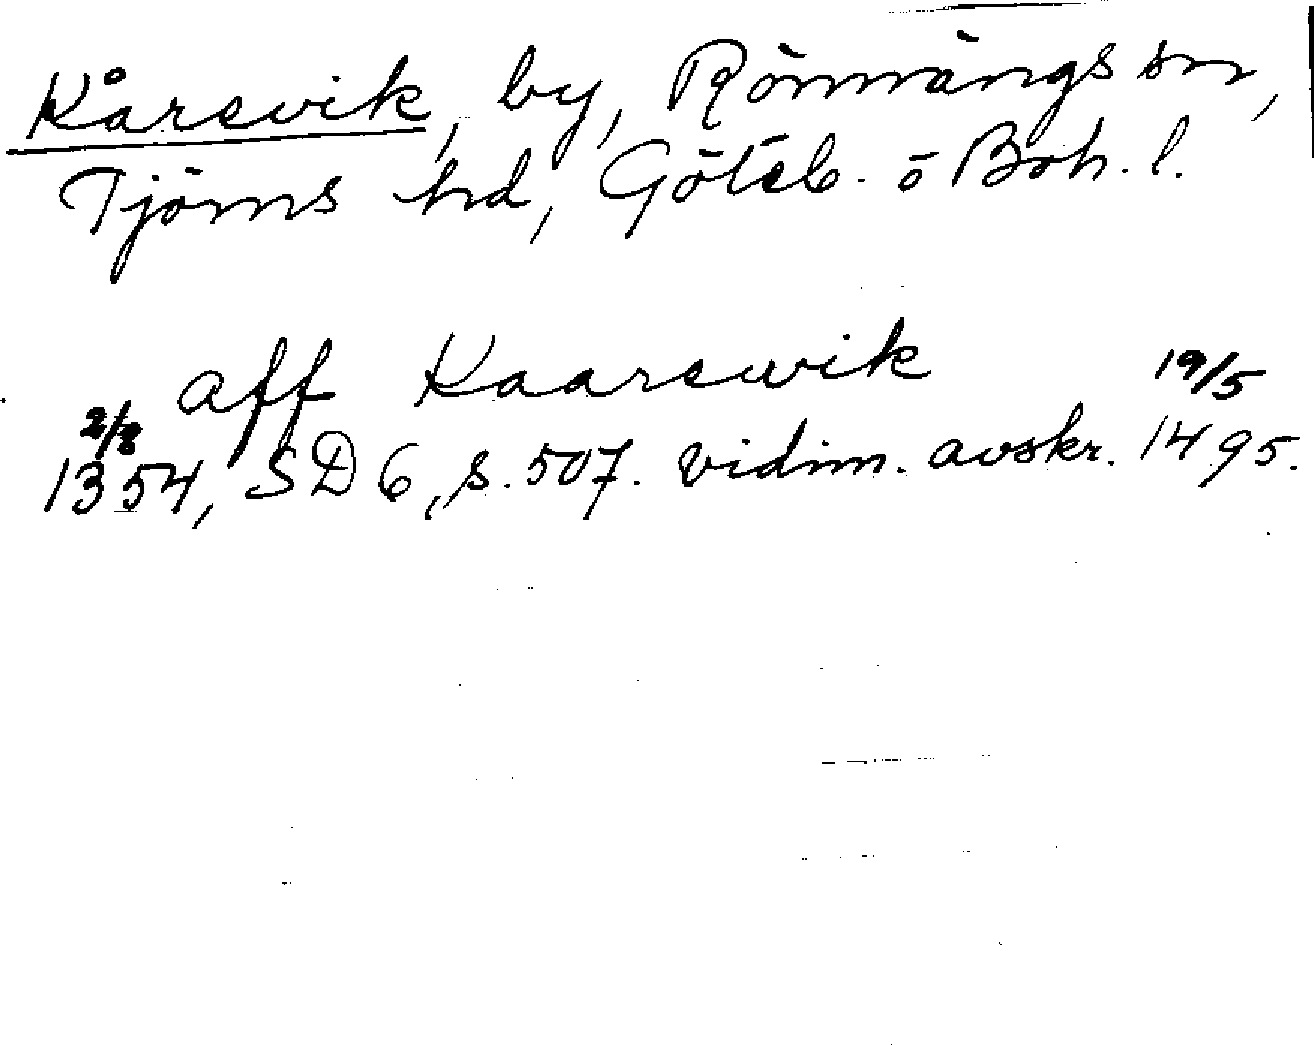 Kårevik, by, Rönnängs sn,
Tjörns hd, Göteb. o Boh. l.
aff Kaarewik 19/5
2/8
1354, SD 6, s. 507. vidim. avskr. 1495.